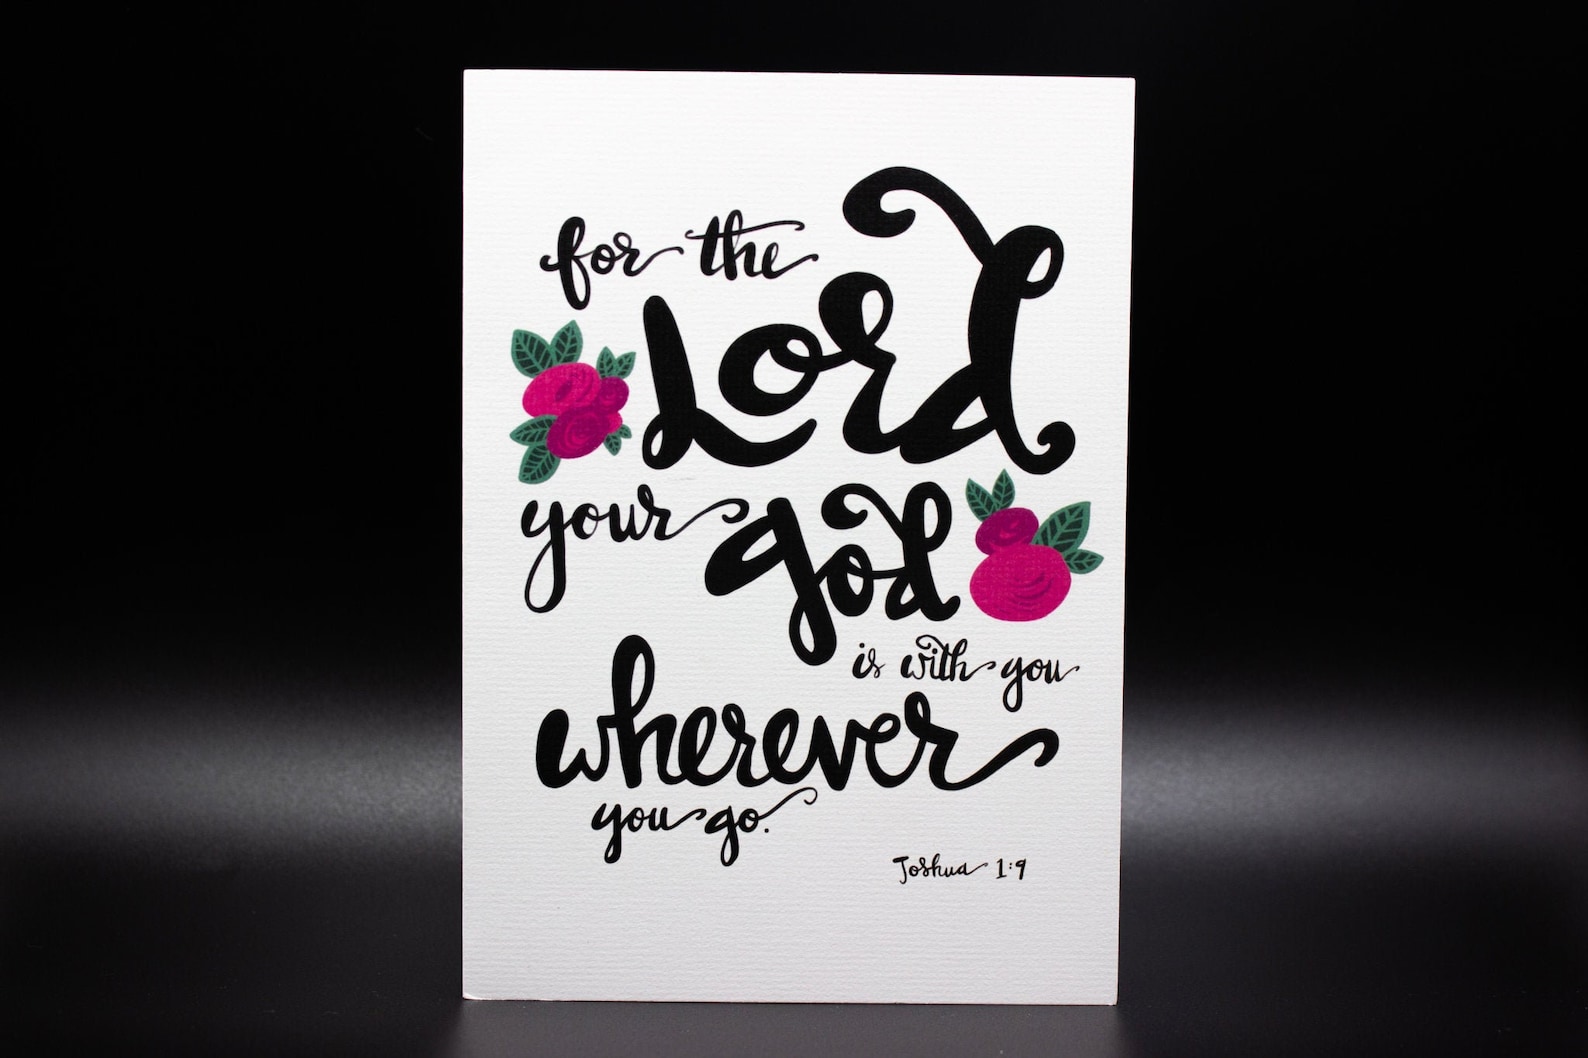 for the
Lord
your god
is with you
wherever
you go.
Joshua 1:9